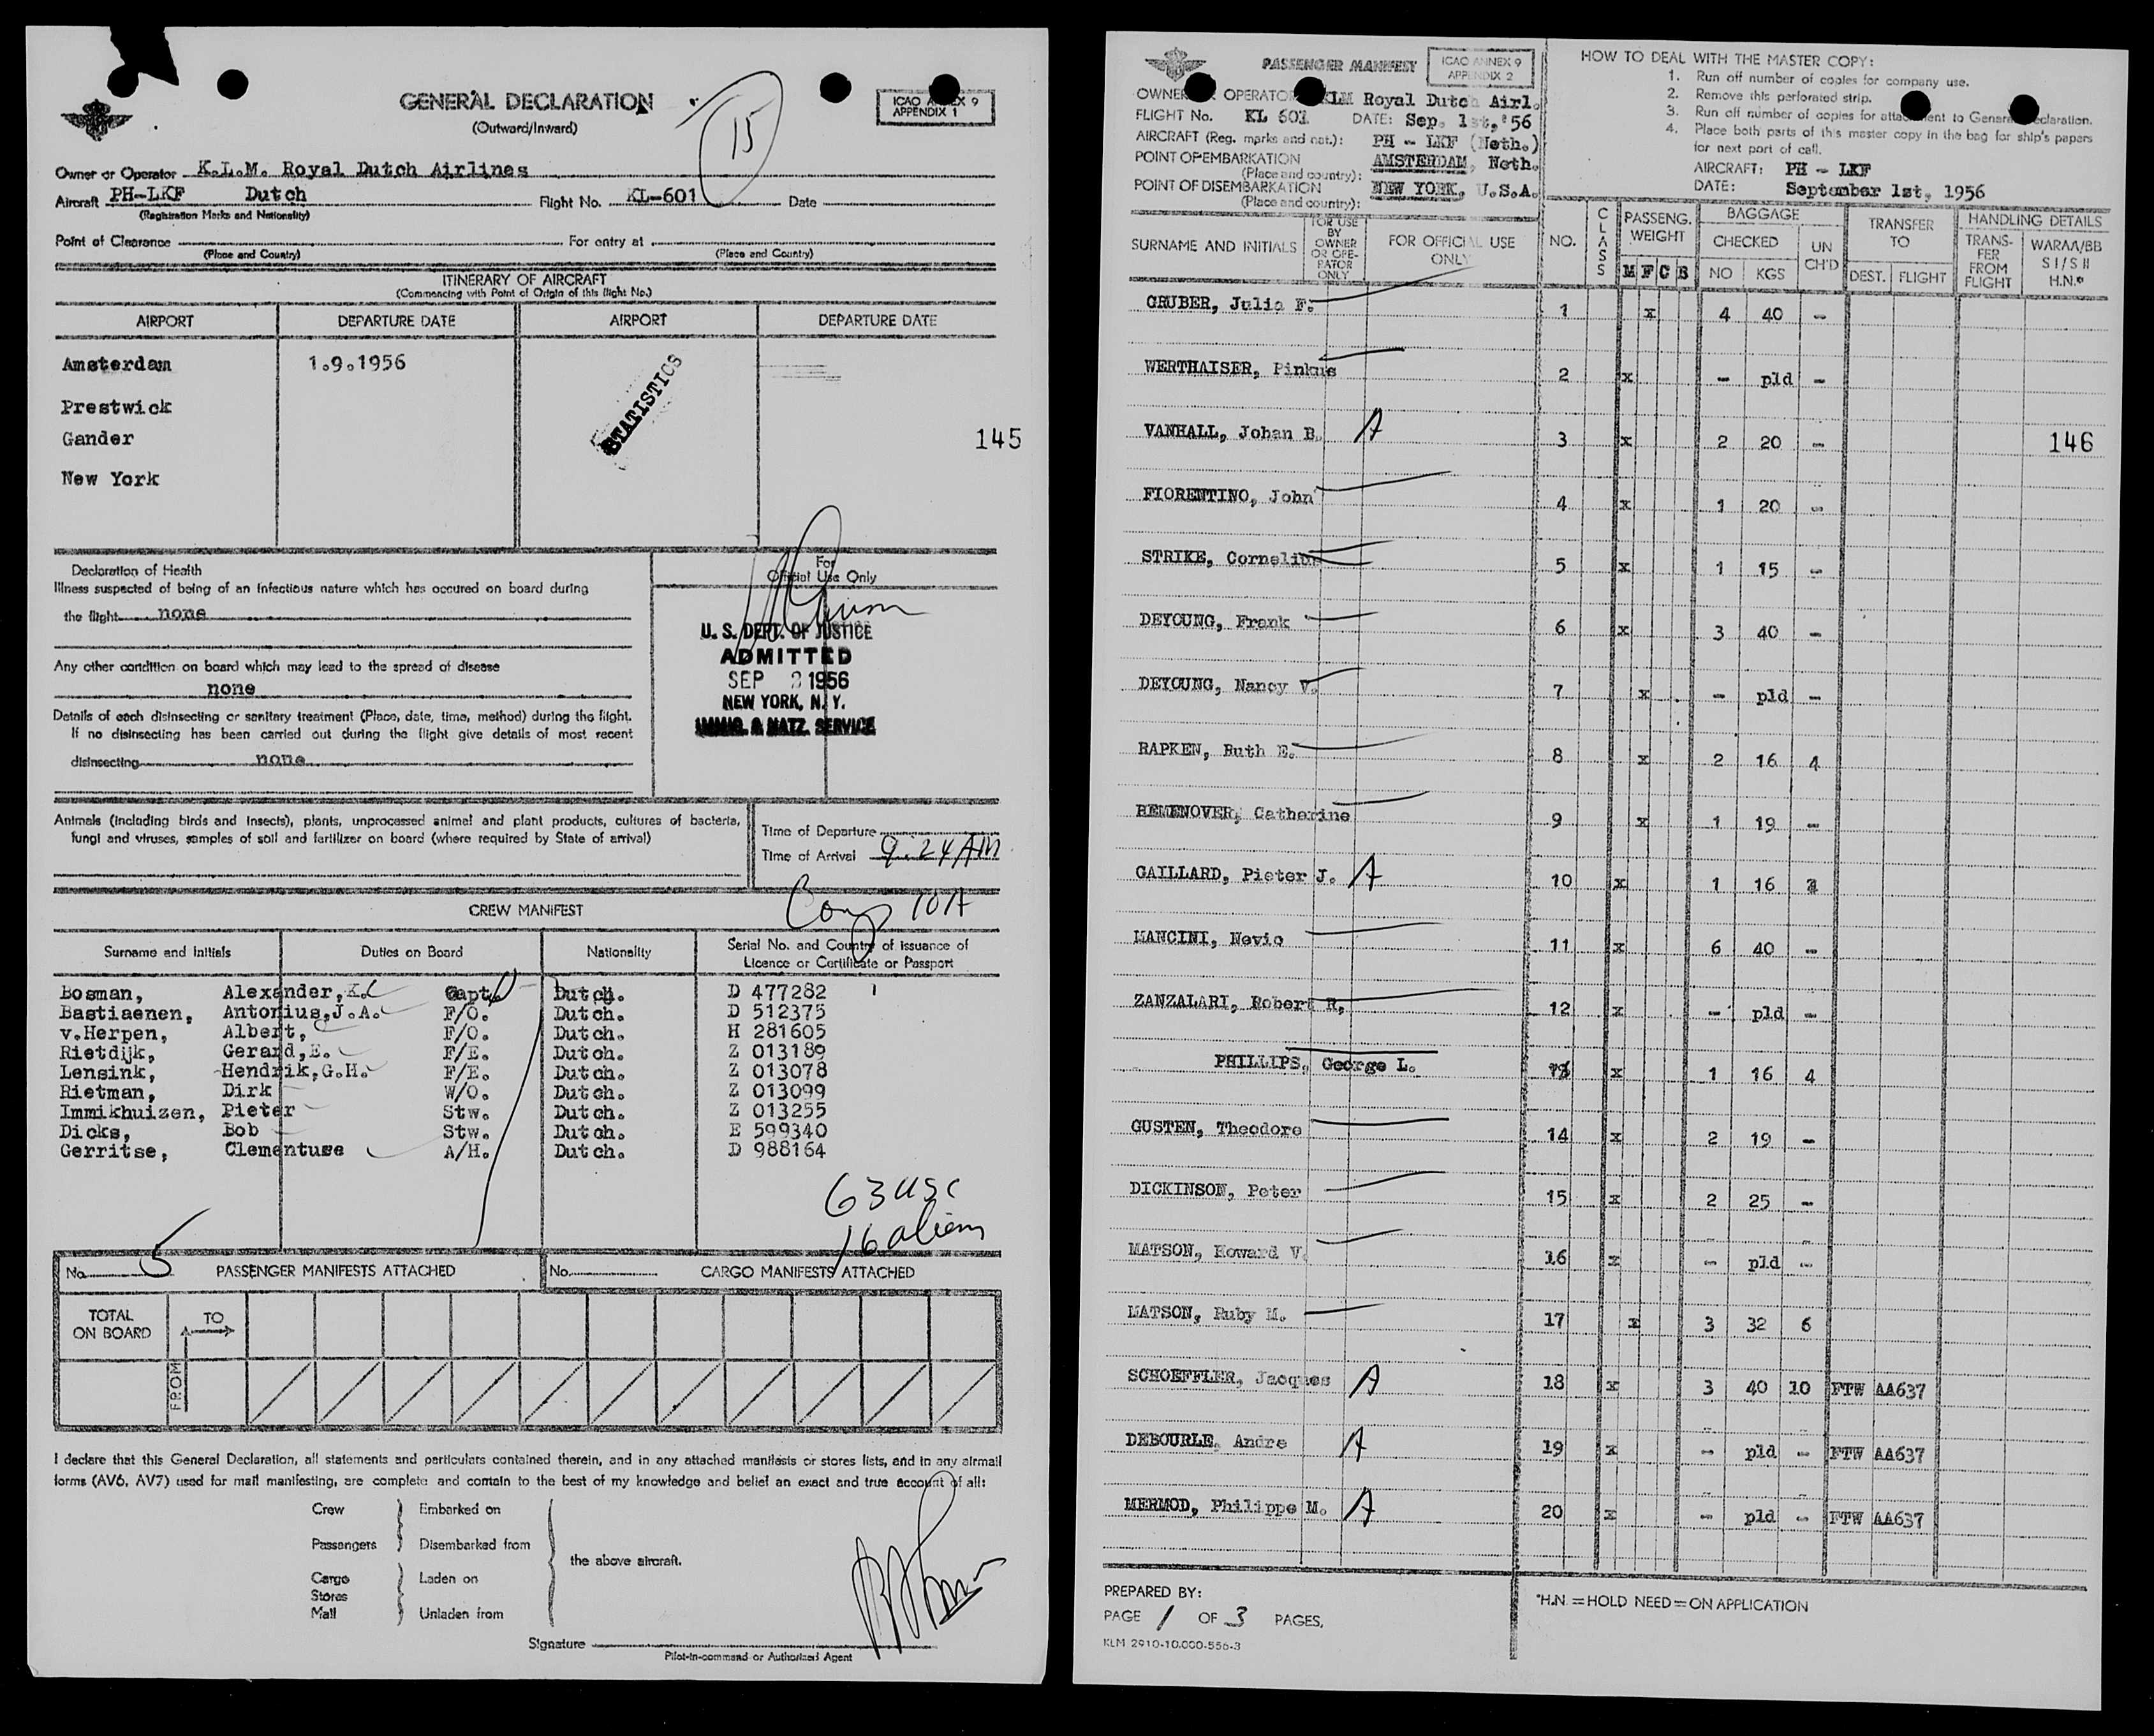 GENERAL DECLARATION
(Outward/Inward)
15
ICAO ANNEX 9
APPENDIX 1
Owner or Operator K.L.M. Royal Dutch Airlines
Aircraft PH-LKF Dutch Flight No. KL-601 Date
(Registration Marks and Nationality)
Point of Clearance For entry at
(Place and Country) (Place and Country)
ITINERARY OF AIRCRAFT
(Commencing with Point of Origin of this flight No.)
AIRPORT DEPARTURE DATE AIRPORT DEPARTURE DATE
Amsterdam 1.9.1956
STATISTICS
Prestwick
Gander
145
New York
Declaration of Health
Illness suspected of being of an infectious nature which has occured on board during
the flight none
Any other condition on board which may lead to the spread of disease
none
Details of each disinsecting or sanitary treatment (Place, date, time, method) during the flight.
If no disinsecting has been carried out during the flight give details of most recent
disinsecting none
For
Official Use Only
U. S. DEPT. OF JUSTICE
ADMITTED
SEP 2 1956
NEW YORK, N. Y.
IMMIG. & NATZ. SERVICE
Animals (including birds and insects), plants, unprocessed animal and plant products, cultures of bacteria,
fungi and viruses, samples of soil and fertilizer on board (where required by State of arrival)
Time of Departure
Time of Arrival 9:24 AM
CREW MANIFEST
10A
Surname and Initials Duties on Board Nationality Serial No. and Country of Issuance of
Licence or Certificate or Passport
Bosman, Alexander, K. Capt. Dutch. D 477282
Bastiaenen, Antonius,J.A. F/O. Dutch. D 512375
v.Herpen, Albert, F/O. Dutch. H 281605
Rietdijk, Gerard,E. F/E. Dutch. Z 013189
Lensink, Hendrik,G.H. F/E. Dutch. Z 013078
Rietman, Dirk W/O. Dutch. Z 013099
Immikhuizen, Pieter Stw. Dutch. Z 013255
Dicks, Bob Stw. Dutch. E 599340
Gerritse, Clementuse A/H. Dutch. D 988164
63 usc
16 aliens
No. 5 PASSENGER MANIFESTS ATTACHED No. CARGO MANIFESTS ATTACHED
TOTAL
ON BOARD
TO
FROM
I declare that this General Declaration, all statements and particulars contained therein, and in any attached manifests or stores lists, and in any airmail
forms (AV6, AV7) used for mail manifesting, are complete and contain to the best of my knowledge and belief an exact and true account of all:
Crew Embarked on
Passengers Disembarked from
the above aircraft.
Cargo Laden on
Stores
Mail Unladen from
Signature
Pilot-in-command or Authorized Agent
PASSENGER MANIFEST
ICAO ANNEX 9
APPENDIX 2
OWNER OR OPERATOR KLM Royal Dutch Airl.
FLIGHT No. KL 601 DATE: Sep. 1st,'56
AIRCRAFT (Reg. marks and nat.): PH - LKF (Neth.)
POINT OF EMBARKATION AMSTERDAM, Neth.
(Place and country):
POINT OF DISEMBARKATION NEW YORK, U.S.A.
(Place and country):
HOW TO DEAL WITH THE MASTER COPY:
1. Run off number of copies for company use.
2. Remove this perforated strip.
3. Run off number of copies for attachment to General Declaration.
4. Place both parts of this master copy in the bag for ship's papers
for next port of call.
AIRCRAFT: PH - LKF
DATE: September 1st, 1956
SURNAME AND INITIALS FOR USE BY OWNER OR OPERATOR ONLY FOR OFFICIAL USE ONLY NO. CLASS PASSENG. WEIGHT M F C B BAGGAGE CHECKED NO KGS UN CH'D TRANSFER TO DEST. FLIGHT HANDLING DETAILS TRANSFER FROM FLIGHT WARAA/BB S I/S II H.N.*
GRUBER, Julia F. 1 x 4 40 -
WERTHAISER, Pinkus 2 x - pld -
VANHALL, Johan B. A 3 x 2 20 - 146
FIORENTINO, John 4 x 1 20 -
STRIKE, Cornelius 5 x 1 15 -
DEYOUNG, Frank 6 x 3 40 -
DEYOUNG, Nancy V. 7 x - pld -
RAPKEN, Ruth E. 8 x 2 16 4
BEMENOVER, Catherine 9 x 1 19 -
GAILLARD, Pieter J. A 10 x 1 16
MANCINI, Nevio 11 x 6 40 -
ZANZALARI, Robert R, 12 x - pld -
PHILLIPS, George L. 13 x 1 16 4
GUSTEN, Theodore 14 x 2 19 -
DICKINSON, Peter 15 x 2 25 -
MATSON, Howard V. 16 x - pld -
MATSON, Ruby M. 17 x 3 32 6
SCHOEFFLER, Jacques A 18 x 3 40 10 FTW AA637
DEBOURLE, Andre A 19 x - pld - FTW AA637
MERMOD, Philippe M. A 20 x - pld - FTW AA637
PREPARED BY:
PAGE 1 OF 3 PAGES,
KLM 2910-10.000-556-3
*H.N. = HOLD NEED = ON APPLICATION